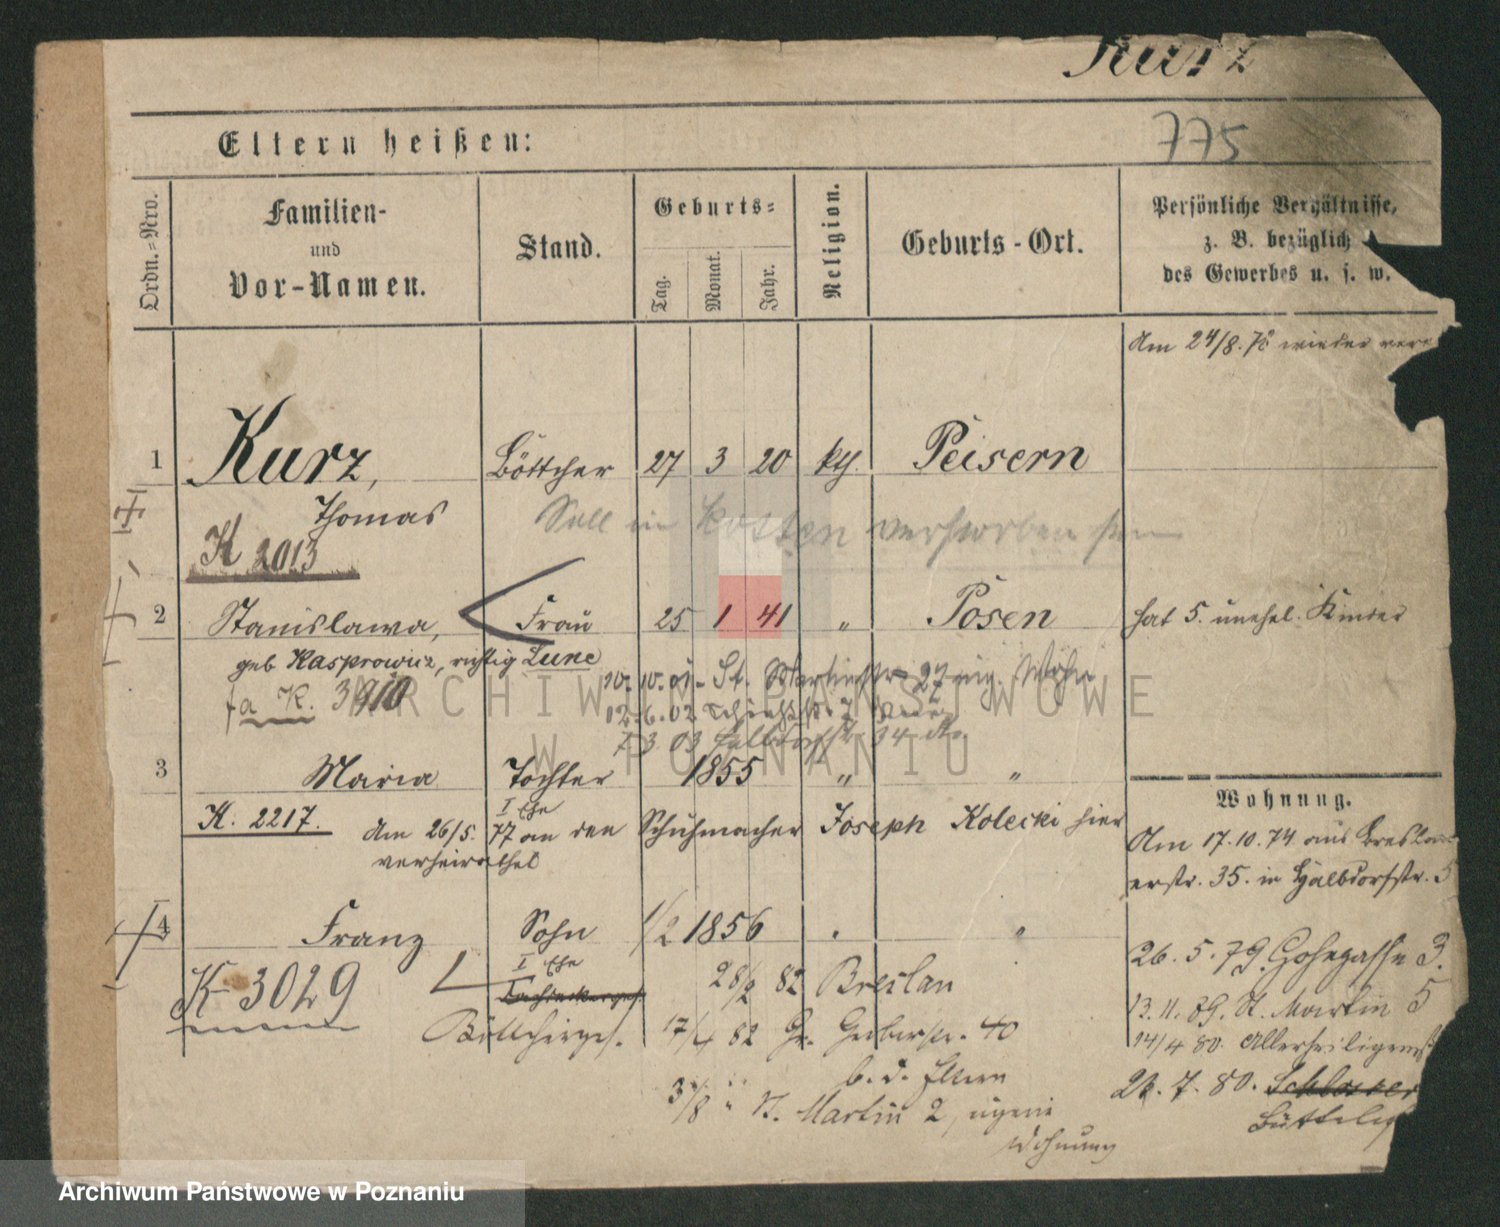 Kurz
775
Eltern heißen:
Ordn.=Nro.
Familien-
und
Vor-Namen.
Stand.
Geburts=
Tag.
Monat.
Jahr.
Religion.
Geburts-Ort.
Persönliche Verhältnisse,
z. B. bezüglich
des Gewerbes u. s. w.
Am 24/8. 78 wieder
1 Kurz, Böttcher 27 3 20 kth. Peisern
Thomas
Soll in Kosten verstorben sein
K 2013
2 Stanislawa, Frau 25 1 41 " Posen hat 5. unehel. Kinder
geb. Kasprowicz, richtig Lune
10. 10. 01 St. Martinstr. 27 eig. Wohn
fa K. 3910
12. 6. 02
7 3 03 Halbdorfstr. 34 do.
3 Maria Tochter 1855 " "
I Ehe
K. 2217. Am 26/5. 77 an den Schuhmacher Joseph Kolecki hier
verheirathet
Wohnung.
Am 17.10.74 aus Breslau
erstr. 35. in Halbdorfstr. 5
4 Franz Sohn 1/2 1856 " "
I Ehe
K 3029
28/2 82 Breslau
Böttcherges. 17/4 82 Gr. Gerberstr. 40
b. d. Eltern
3/8 " St. Martin 2, eigene
Wohnung
26. 5. 79. 3.
13. 11. 89. St. Martin 5
14/4 80. Allerheiligenst
28. 7. 80. Schlosser
Büttelst
ARCHIWUM PAŃSTWOWE
W POZNANIU
Archiwum Państwowe w Poznaniu